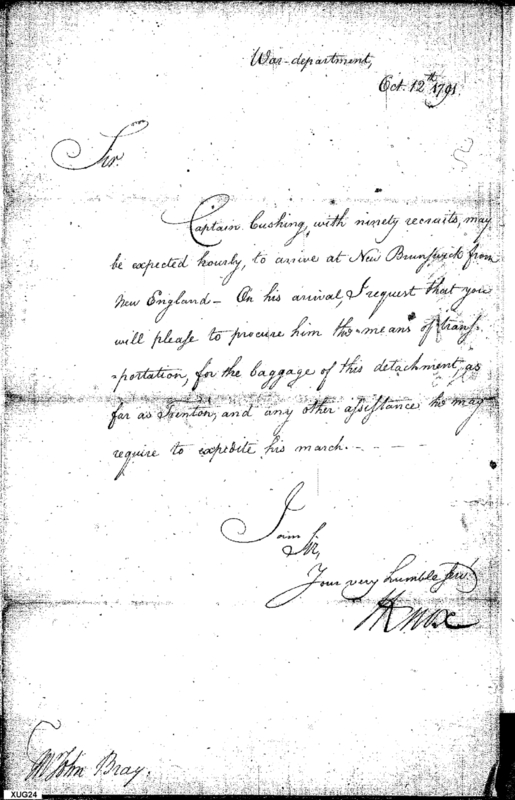 War-department,
Oct. 12th 1791.
Sir.
Captain Cushing, with ninety recruits, may
be expected hourly, to arrive at New Brunswick from
New England - On his arrival, I request that you
will please to procure him the means of trans-
-portation, for the baggage of this detachment, as
far as Trenton, and any other assistance he may
require to expedite his march. -
I am
Sir,
Your very humble Serv.
HKnox
Mr John Bray.
XUG24